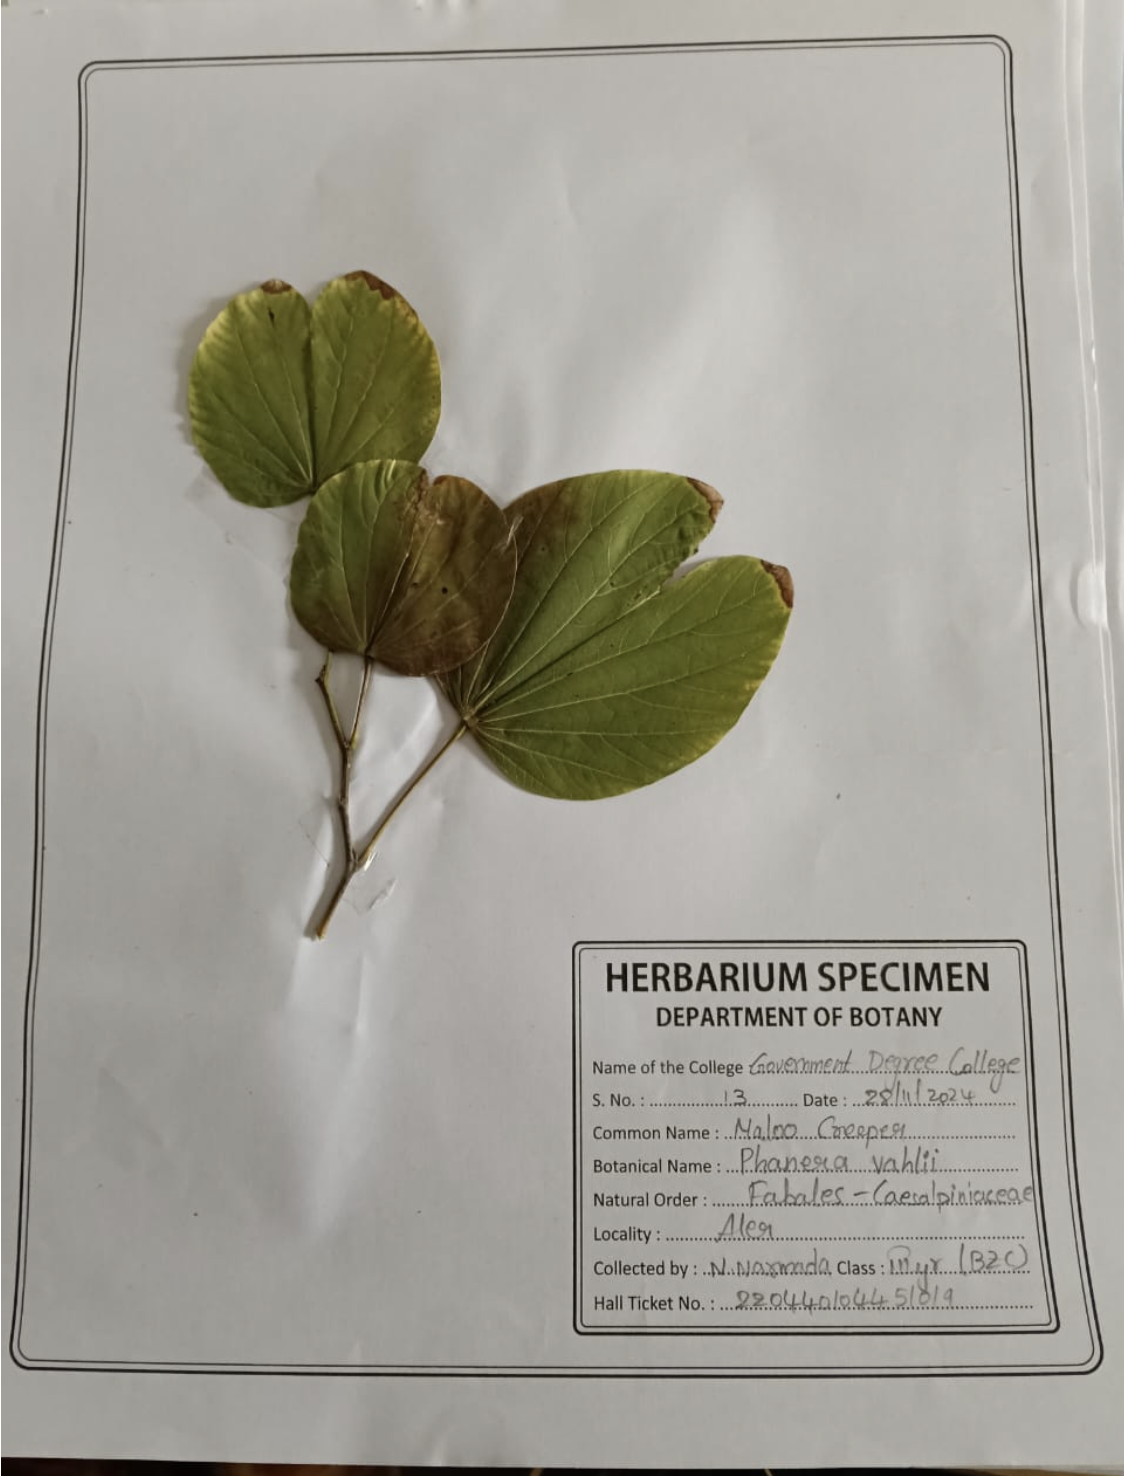 HERBARIUM SPECIMEN
DEPARTMENT OF BOTANY
Name of the College Government Degree College
S. No. : 13 Date : 28/11/2024
Common Name : Maloo Creeper
Botanical Name : Phanera vahlii
Natural Order : Fabales - Caesalpiniaceae
Locality : Aler
Collected by : N. Narmada Class : III yr (BZC)
Hall Ticket No. : 220440104451019